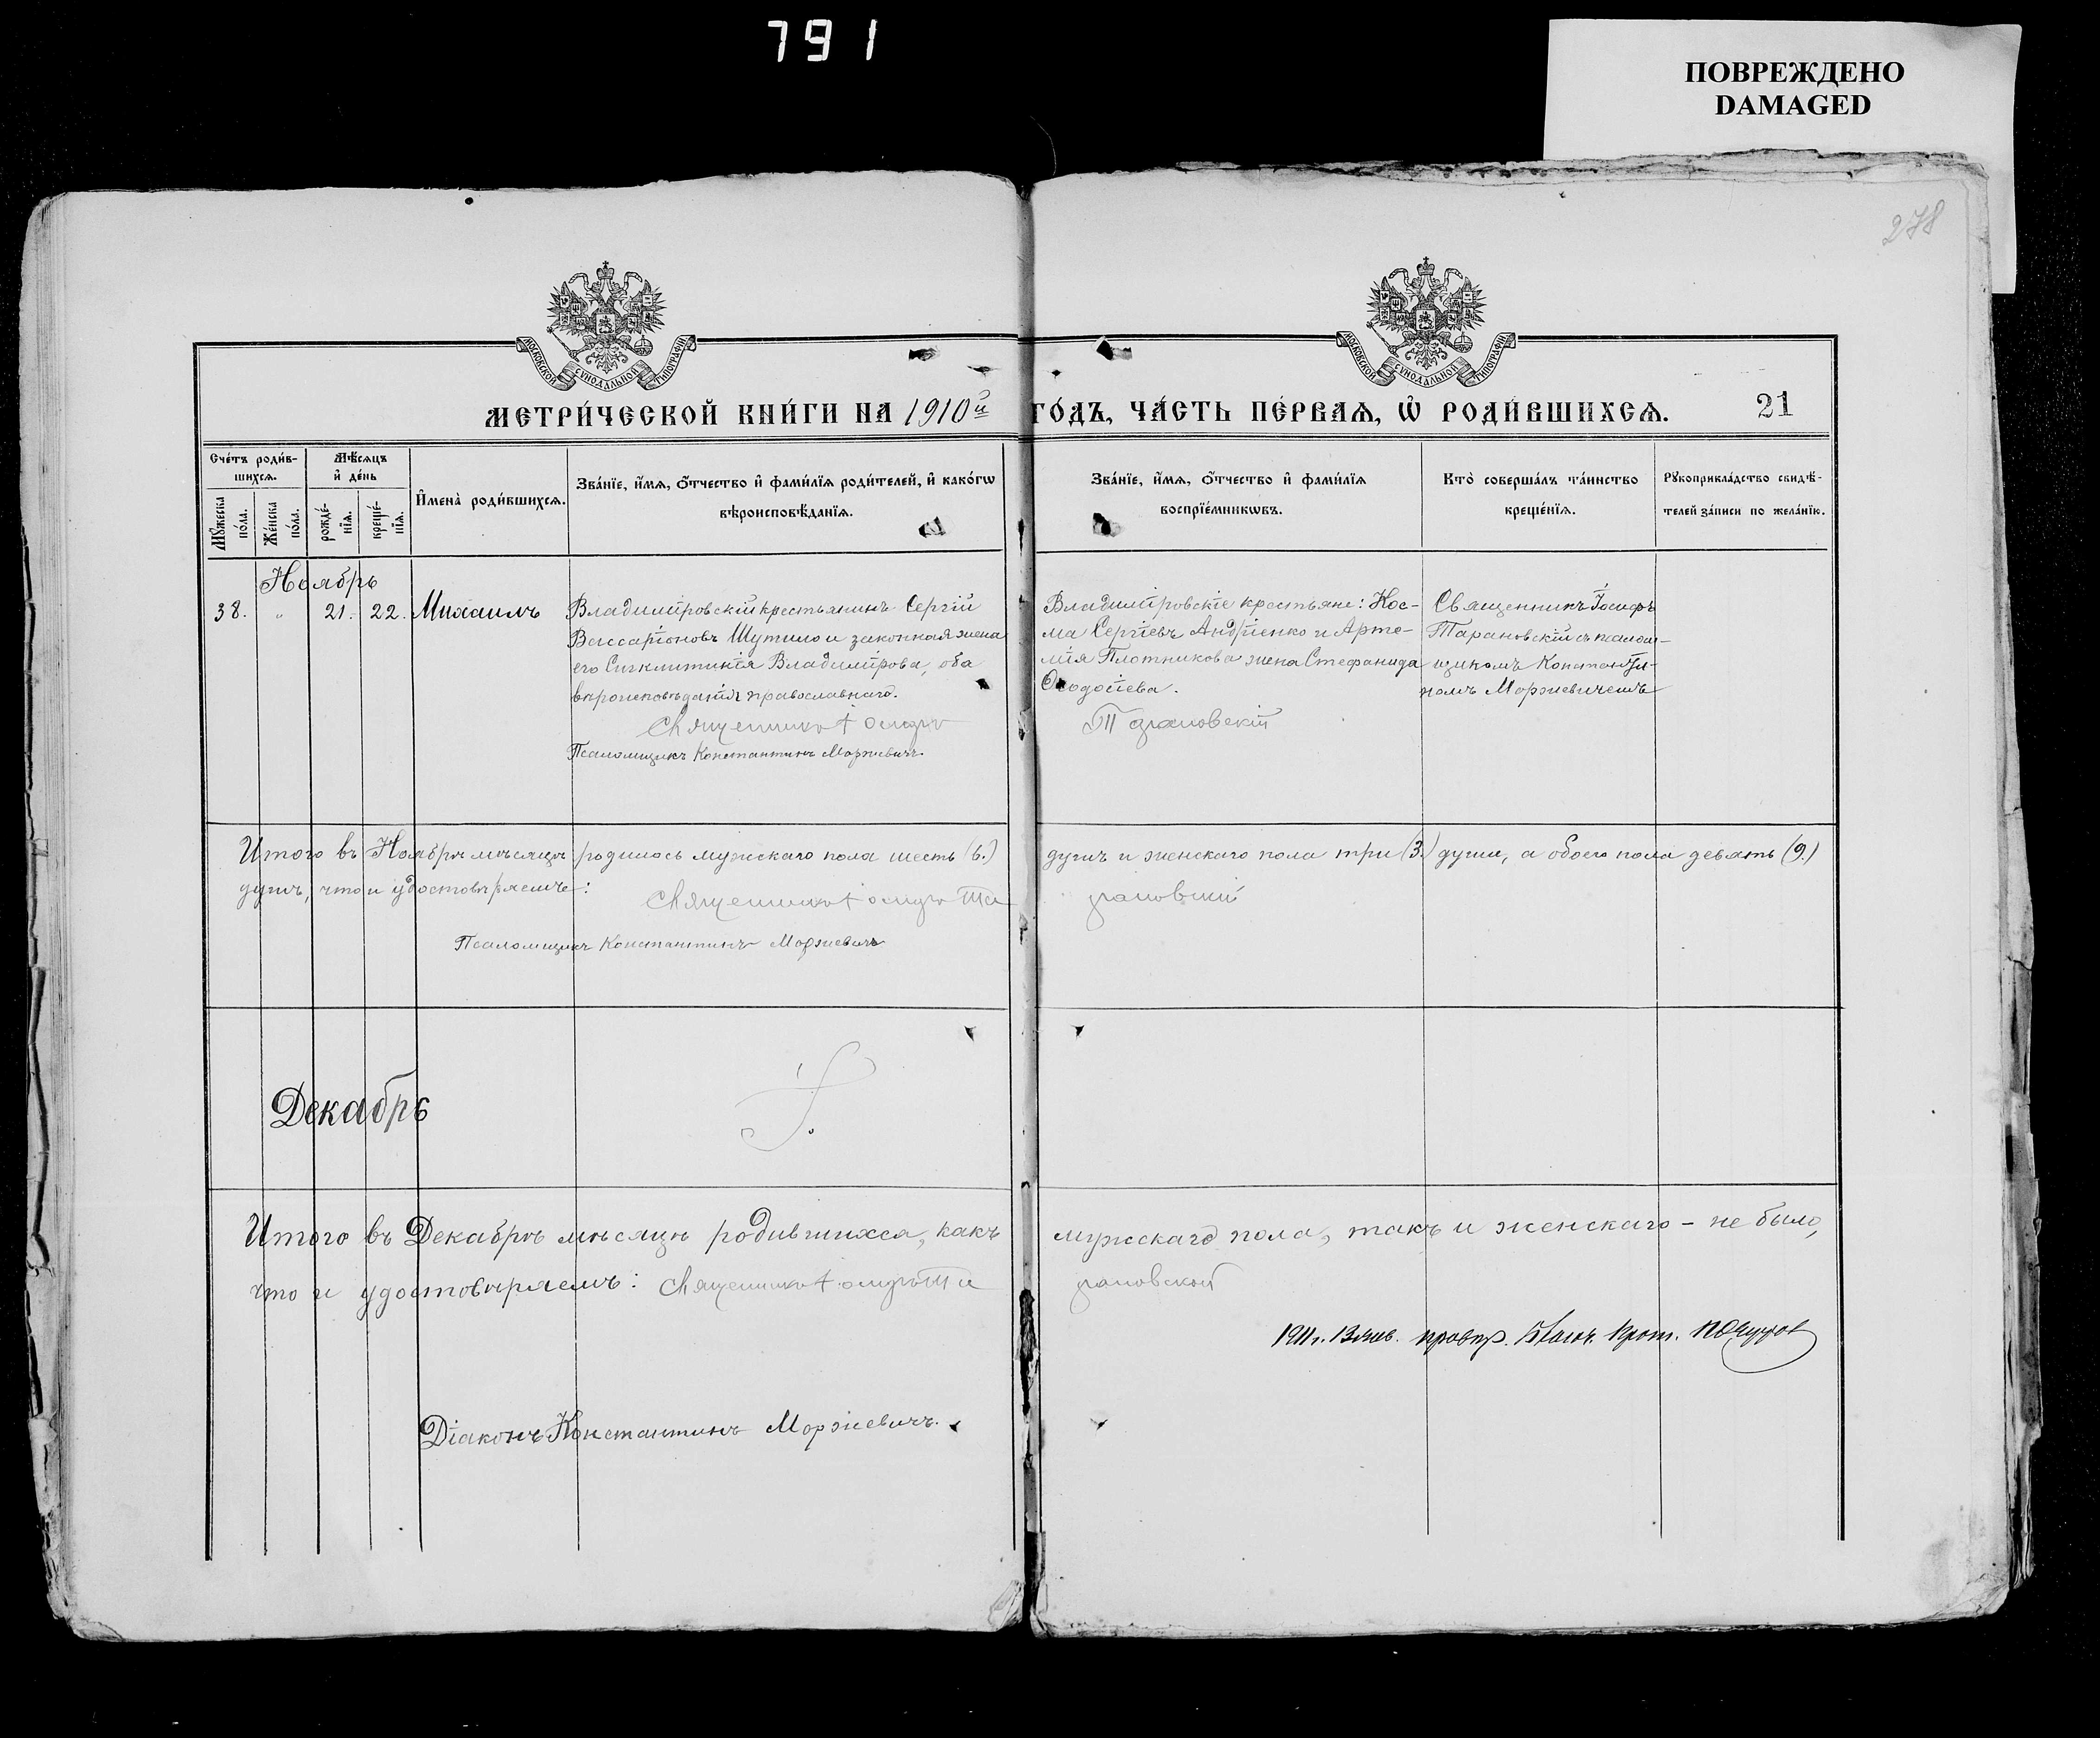 791
ПОВРЕЖДЕНО
DAMAGED
278
МОСКОВСКОЙ СѴНОДАЛЬНОЙ ТИПОГРАФІИ
МОСКОВСКОЙ СѴНОДАЛЬНОЙ ТИПОГРАФІИ
МЕТРИ́ЧЕСКОЙ КНИ́ГИ НА 1910й ГО́ДЪ, ЧА́СТЬ ПЕ́РВАѦ, Ѽ РОДИ́ВШИХСѦ. 21
Сче́тъ роди́в-
шихсѧ.
Мѣ́сѧцъ
и҆ де́нь
Мꙋ́жеска
по́ла.
Же́нска
по́ла.
рожде́-
нїѧ.
креще́-
нїѧ.
И҆мена̀ роди́вшихсѧ.
Зва́нїе, и҆́мѧ, ѻ҆́тчество и҆ фами́лїѧ роди́телей, и҆ како́гѡ
вѣроисповѣ́данїѧ.
Зва́нїе, и҆́мѧ, ѻ҆́тчество и҆ фами́лїѧ
воспрїе́мникѡвъ.
Кто̀ соверша́лъ та́инство
креще́нїѧ.
Рꙋкоприкла́дство свидѣ́-
телей за́писи по жела́нїю.
Ноябрь
38. " 21. 22. Михаилъ
Владимїровскій крестьянинъ Сергій
Виссаріоновъ Шутило и законная жена
его Сигклитикія Владимірова, оба
вѣроисповѣданія православнаго.
Священникъ Іосифъ
Псаломщикъ Константинъ Моржевичъ
Владимїровскіе крестьяне: Кос-
ма Сергіевъ Андріенко и Арте-
мія Плотникова жена Стефанида
Ѳеодосіева.
Тарановскій
Священникъ Іосифъ
Тарановскій съ псалом-
щикомъ Константи-
номъ Моржевичемъ
Итого въ Ноябрѣ мѣсяцѣ родилось мужскаго пола шесть (6.) душъ и женскаго пола три (3.) души, а обоего пола девять (9.)
душъ, что и удостовѣряемъ:
Священникъ Іосифъ Тарановскій
Псаломщикъ Константинъ Моржевичъ
Декабрь
Итого въ Декабрѣ мѣсяцѣ родившихся, какъ мужскаго пола, такъ и женскаго - не было,
что и удостовѣряемъ: Священникъ Іосифъ Тарановскій
1911 г. 13 янв. провѣр. Благоч. Прот.
Діаконъ Константинъ Моржевичъ.